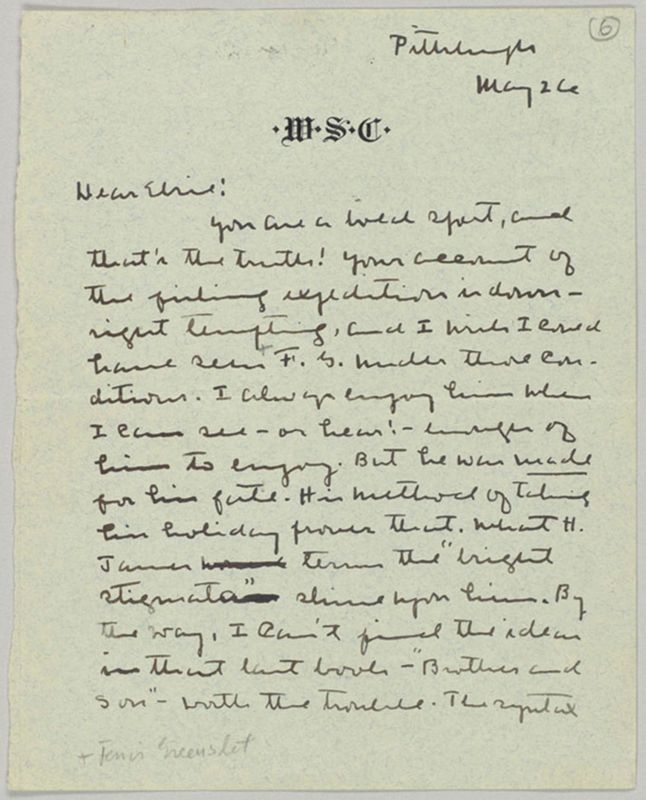 6
Pittsburgh
May 26
·W·S·C·
Dear Elsie!
You are a bold sport, and
that's the truth! Your account of
the fishing expedition is down-
right tempting, and I wish I could
have seen F. G. under those con-
ditions. I always enjoy him when
I can see - or hear! - enough of
him to enjoy. But he was made
for his fate. His method of taking
his holiday proves that. What H.
James terms the "bright
stigmata" shine upon him. By
the way, I can't find the ideas
in that last book - "Brother and
Son" - worth the trouble. The syntax
+ Ferris Greenslet